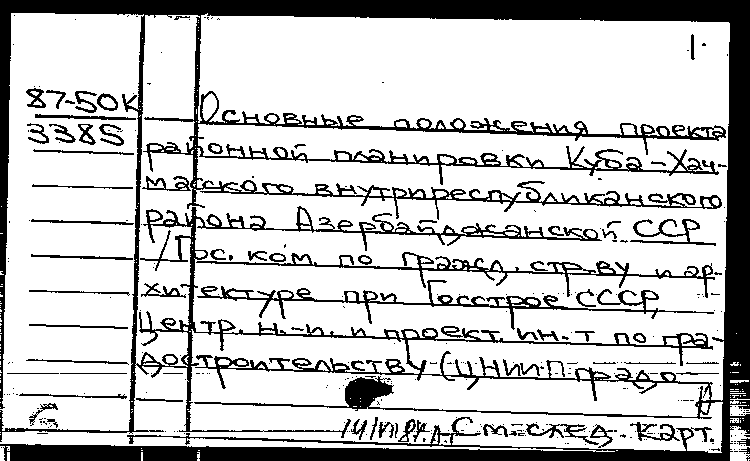 1.
87-50К
3385
Основные положения проекта
районной планировки Куба-Хач-
масского внутриреспубликанского
района Азербайджанской ССР
/Гос. ком. по гражд. стр-ву и ар-
хитектуре при Госстрое СССР,
Центр. н.-и. и проект. ин.-т по гра-
достроительству (ЦНИИП градо
См. след. карт.